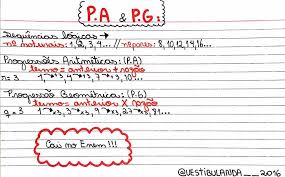 P.A & P.G:
Sequências lógicas →
nº naturais: 1, 2, 3, 4... // nº pares: 8, 10, 12, 14, 16...
Progressões Aritméticas: (P.A)
termo = anterior + razão
r = 3 1 +3, 4 +3, 7 +3, 10...
Progressão Geométrica: (P.G)
termo = anterior x razão
q = 3 1 x3, 3 x3, 9 x3, 27 x3, 81...
Cai no Enem!!!
@VESTIBULANDA__2016